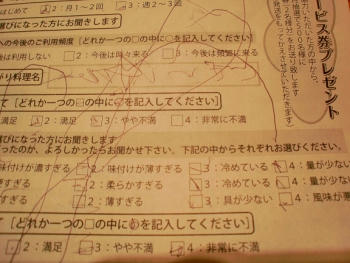 はじめて 2：月1～2回 3：週2～3回
選びになった方にお聞きします
への今後のご利用頻度 [どれか一つの□の中に
は利用しない 2：今後は時々来る 3：今後は頻繁に来る
がり料理名
て [どれか一つの□の中に○を記入してください]
2：満足 3：やや不満 4：非常に不満
選びになった方にお聞きします
ったのか、よろしかったらお聞かせ下さい。下記の中からそれぞれお選びください。
味付けが濃すぎる 2：味付けが薄すぎる 3：冷めている 4：量が少ない
すぎる 2：柔らかすぎる 3：冷めている 4：量が少
すぎる 2：薄すぎる 3：具が少ない 4：風味が悪
て [どれか一つの□の中に○を記入してください]
2：満足 3：やや不満 4：非常に不満
ービス券プレゼント
力いただいた方の中から、